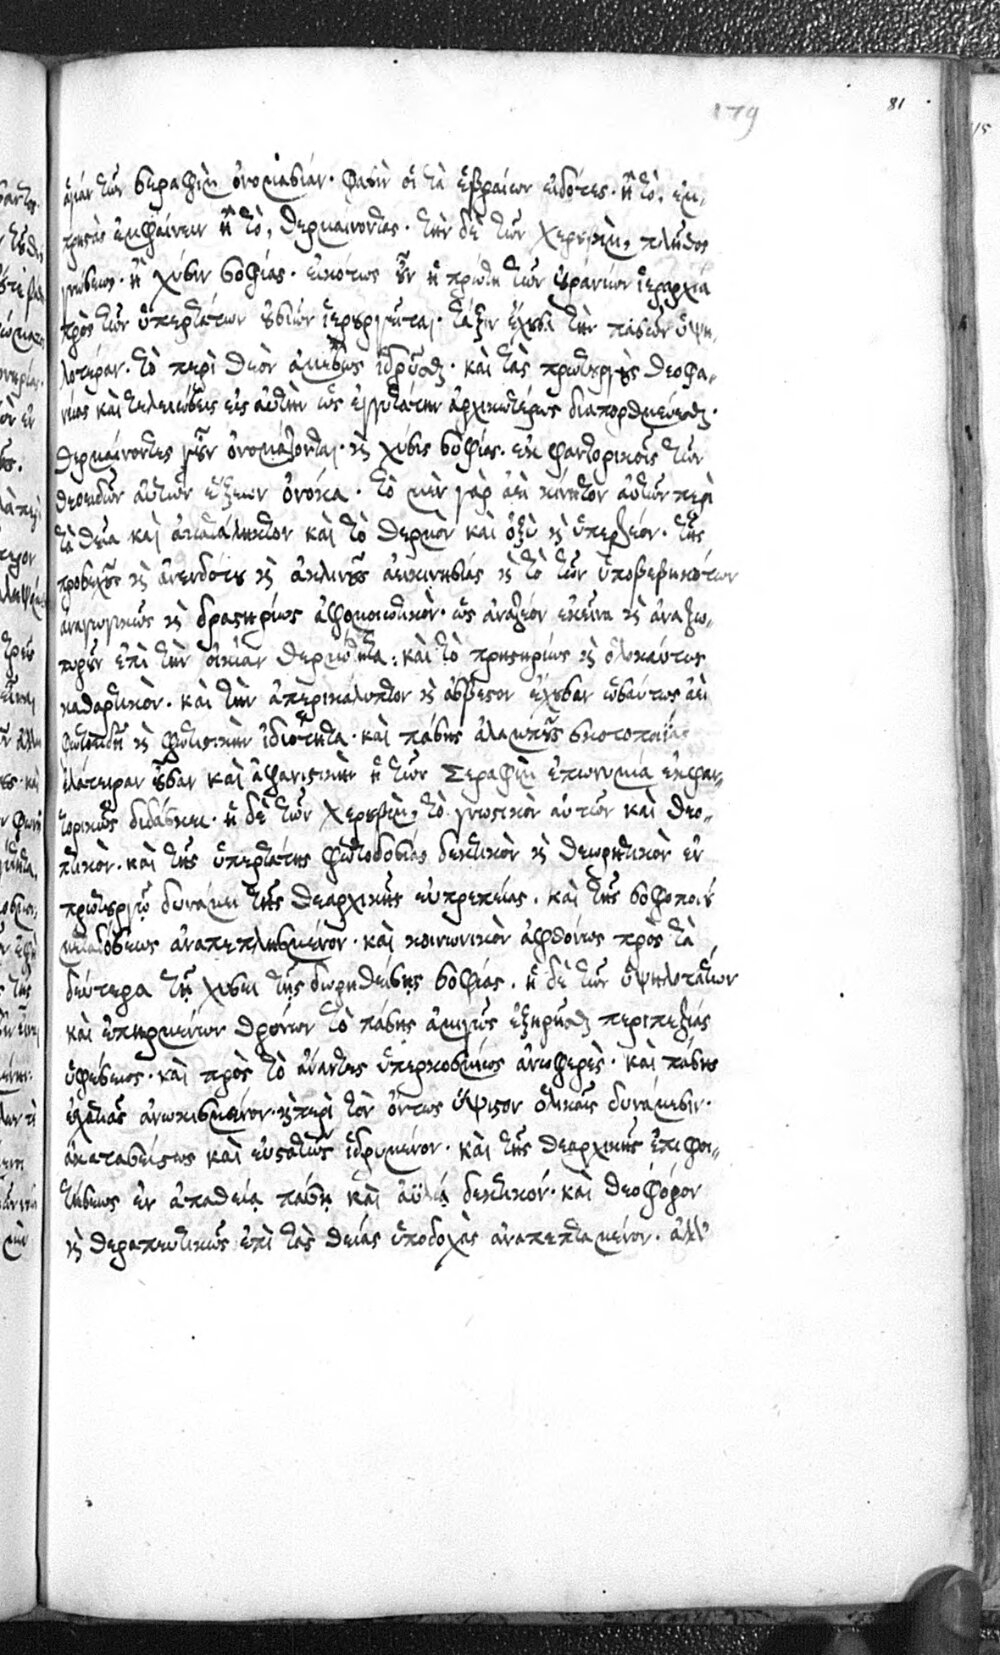 179 81
ἁγίαν τῶν σεραφὶμ ὀνομασίαν· φασὶν οἱ τὰ ἑβραίων εἰδότες· ἢ τὸ, ἐμ-
πρηστὰς ἐμφαίνειν ἢ τὸ, θερμαίνοντας· τὴν δὲ τῶν χερουβὶμ, πλῆθος
γνώσεως· ἢ χύσιν σοφίας· εἰκότως οὖν ἡ πρώτη τῶν οὐρανίων ἱεραρχία
πρὸς τῶν ὑπερτάτων οὐσιῶν ἱερουργεῖται· τάξιν ἔχουσα τὴν πασῶν ὑψη-
λοτέραν· τὸ περὶ θεὸν ἀμέσως ἱδρῦσθαι· καὶ τὰς πρωτουργοὺς θεοφα-
νείας καὶ τελειώσεις εἰς αὐτὴν ὡς ἐγγυτάτην ἀρχικωτέρως διαπορθμεύεσθαι·
θερμαίνοντες γοῦν ὀνομάζονται· καὶ χύσις σοφίας· ἐκφαντορικοῖς τῶν
θεοειδῶν αὐτῶν ἕξεων ὀνόμα· τὸ μὲν γὰρ ἀεὶ κίνητον αὐτῶν περὶ
τὰ θεῖα καὶ ἀκατάληκτον καὶ τὸ θερμὸν καὶ ὀξὺ καὶ ὑπερζέον· τῆς
προσεχοῦς καὶ ἀνενδότου καὶ ἀκλινοῦς ἀεικινησίας καὶ τὸ τῶν ὑποβεβηκότων
ἀναγωγικῶς καὶ δραστηρίως ἀφομοιωτικὸν· ὡς ἀναζέον ἐκεῖνα καὶ ἀναζω-
πυροῦν ἐπὶ τὴν οἰκίαν θερμότητα: καὶ τὸ πρηστηρίως καὶ ὁλοκαύτως
καθαρτικὸν· καὶ τὴν ἀπερικάλυπτον καὶ ἄσβεστον ἔχουσαν ὡσαύτως ἀεὶ
φωτοειδῆ καὶ φωτιστικὴν ἰδιότητα· καὶ πάσης ἀλαμποῦς σκοτοποιΐας
ἐλάτειραν οὖσαν καὶ ἀφανιστικὴν ἡ τῶν Σεραφὶμ ἐπωνυμία ἐκφαν-
τορικῶς διδάσκει· ἡ δὲ τῶν χερουβὶμ, τὸ γνωστικὸν αὐτῶν καὶ θεο-
πτικὸν· καὶ τῆς ὑπερτάτης φωτοδοσίας δεκτικὸν καὶ θεωρητικὸν ἐν
πρωτουργῷ δυνάμει τῆς θεαρχικῆς εὐπρεπείας. καὶ τῆς σοφοποιοῦ
μεταδόσεως ἀναπεπλησμένον· καὶ κοινωνικὸν ἀφθόνως πρὸς τὰ
δεύτερα τῇ χύσει τῆς δωρηθείσης σοφίας. ἡ δὲ τῶν ὑψηλοτάτων
καὶ ἐπηρμένων θρόνων τὸ πάσης ἀμιγῶς ἐξηρῆσθαι περιπεζίας
ὑφέσεως· καὶ πρὸς τὸ ἄναντες ὑπερκοσμίως ἀνωφερὲς· καὶ πάσης
ἐσχατιᾶς ἀνῳκισμένον· καὶ περὶ τὸν ὄντως ὕψιστον ὁλικαῖς δυνάμεσιν·
ἀκατασείστως καὶ εὐσταθῶς ἱδρυμένον· καὶ τῆς θεαρχικῆς ἐπιφοι-
τήσεως ἐν ἀπαθείᾳ πάσῃ καὶ ἀϋλίᾳ δεκτικόν· καὶ θεοφόρον
καὶ θεραπευτικῶς ἐπὶ τὰς θείας ὑποδοχὰς ἀναπεπταμένον. ἀλλ'